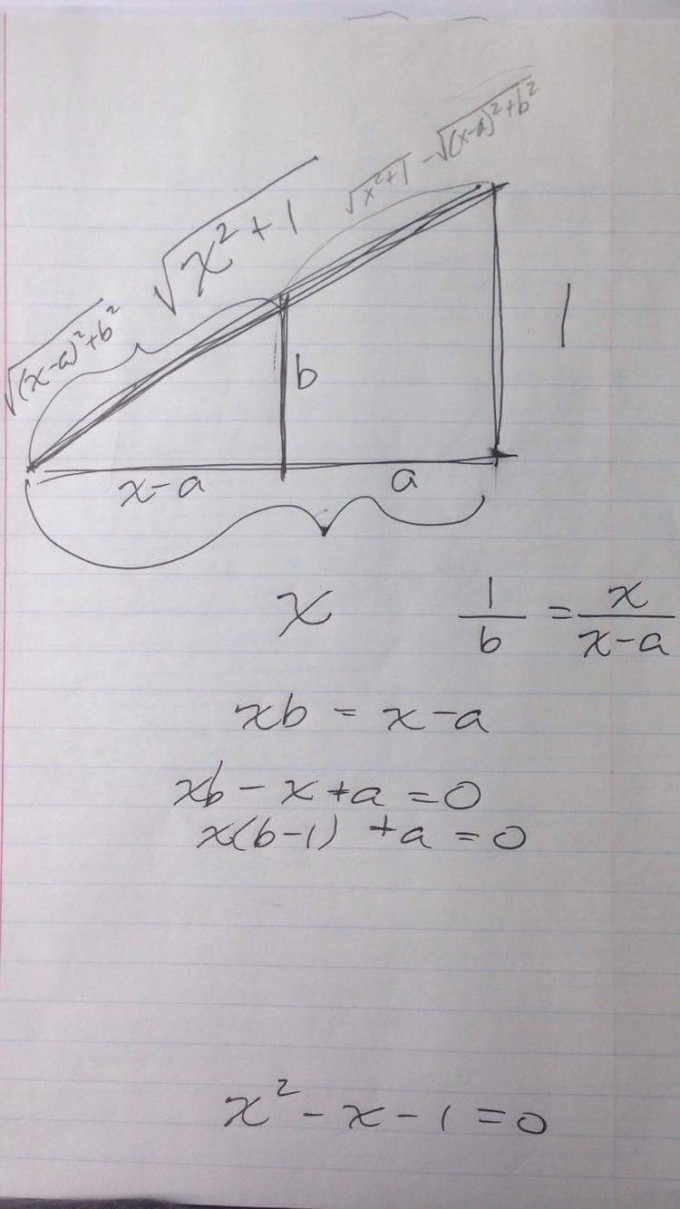 √x²+1 - √(x-a)²+b²
√x²+1
√(x-a)²+b²
1
b
x-a
a
x
1/b = x/x-a
xb = x-a
xb - x + a = 0
x(b-1) + a = 0
x² - x - 1 = 0